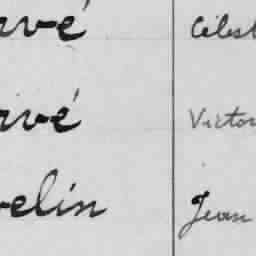 rvé Célest
rvé Victor
velin Jean